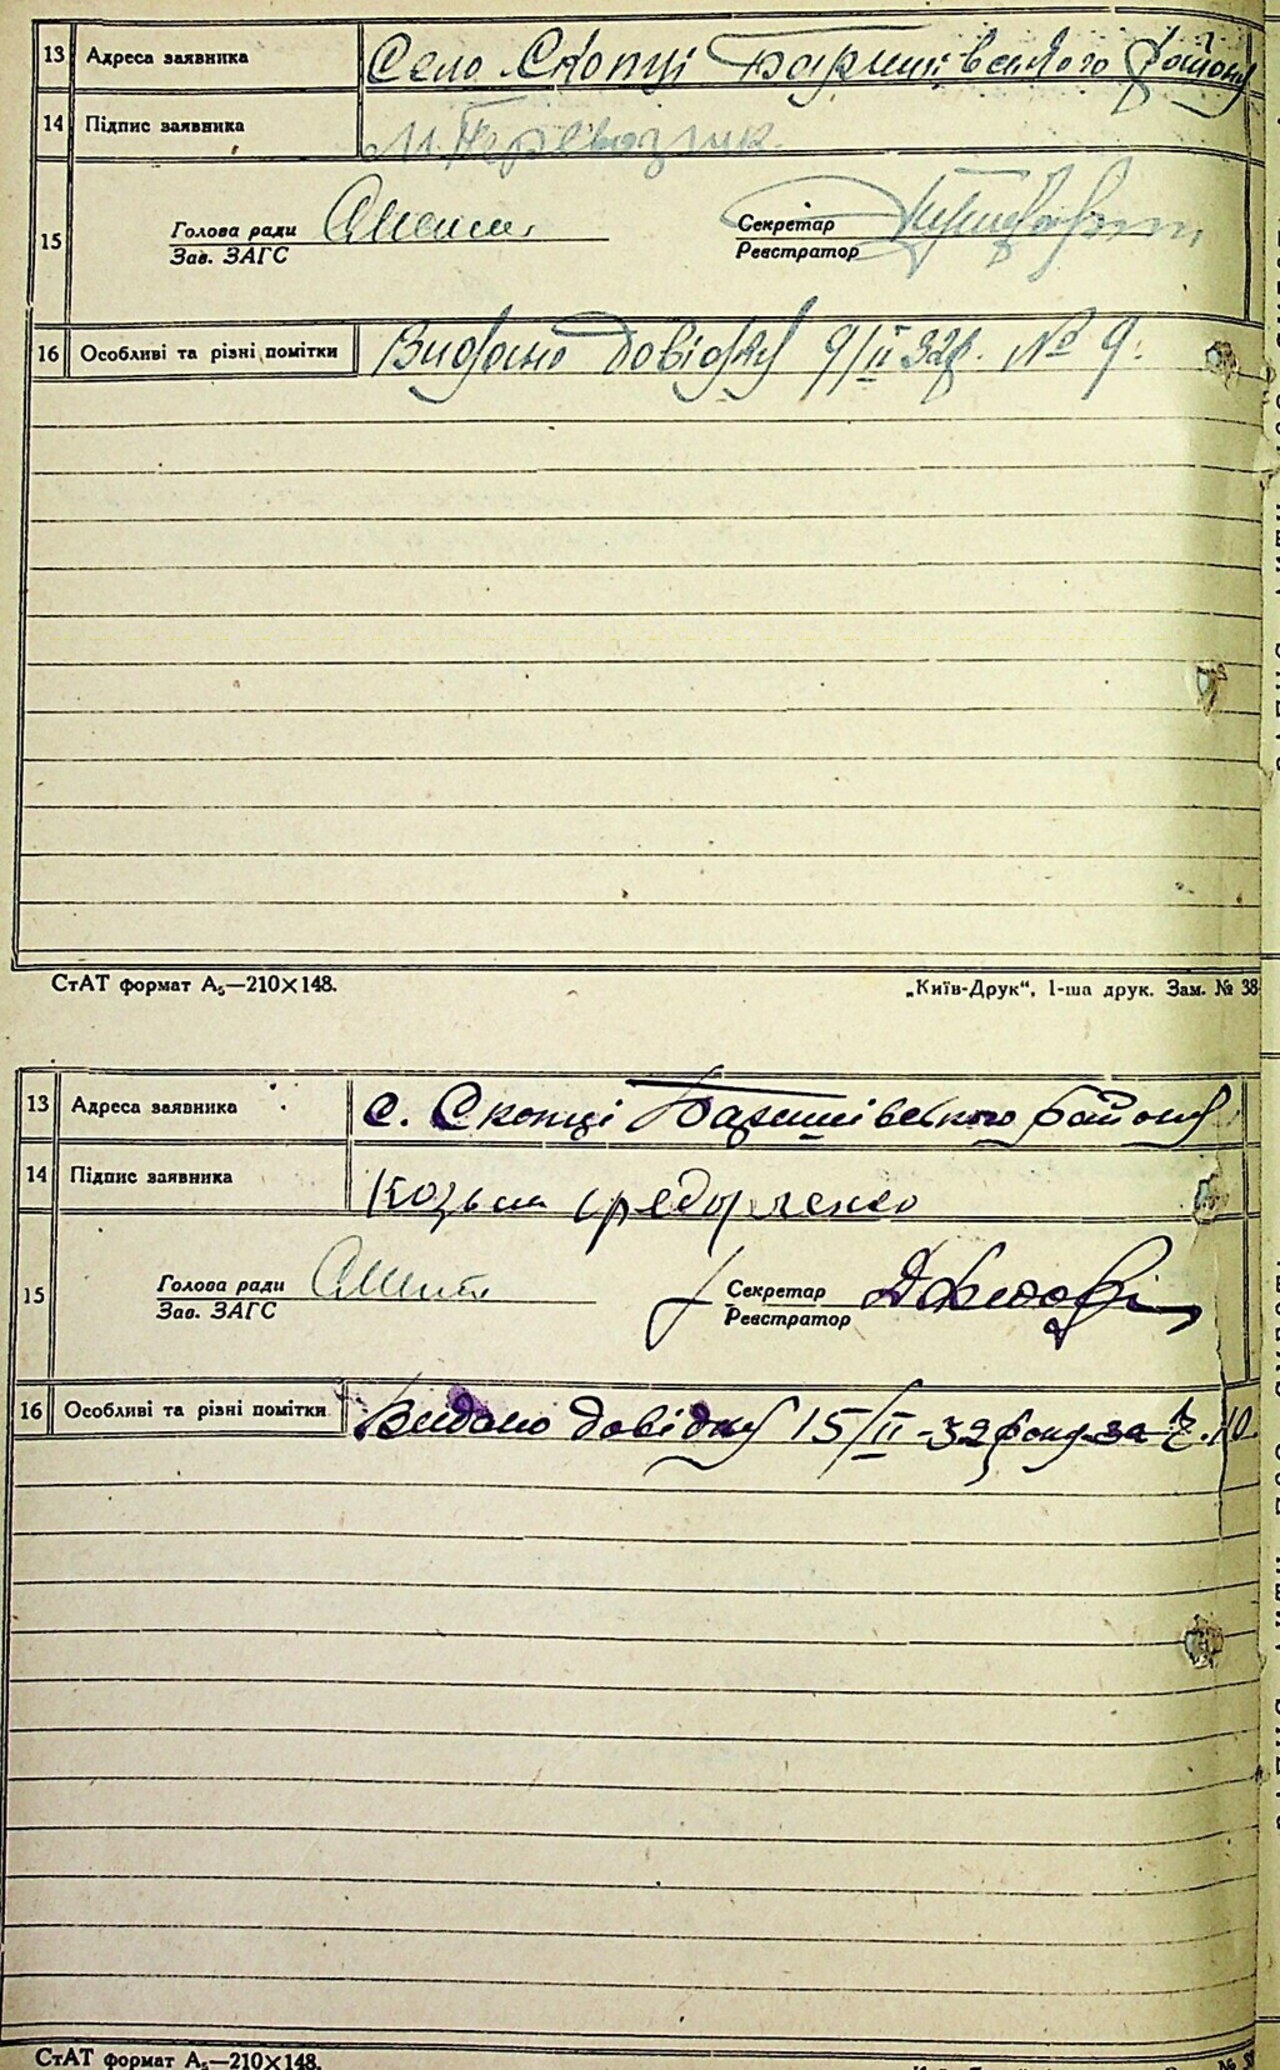 13 Адреса заявника Село Скопці Баришівського району
14 Підпис заявника М. Перевозник.
15 Голова ради Секретар
Зав. ЗАГС Реєстратор
16 Особливі та різні помітки Видано довідку 9/II 32р. № 9.
СтАТ формат А₅—210×148. „Київ-Друк“, 1-ша друк. Зам. № 38
13 Адреса заявника с. Скопці Баришівського району
14 Підпис заявника Козьма Федорченко
15 Голова ради Секретар
Зав. ЗАГС Реєстратор
16 Особливі та різні помітки Видано довідку 15/II-32 року за №. 10.
СтАТ формат А₅—210×148.